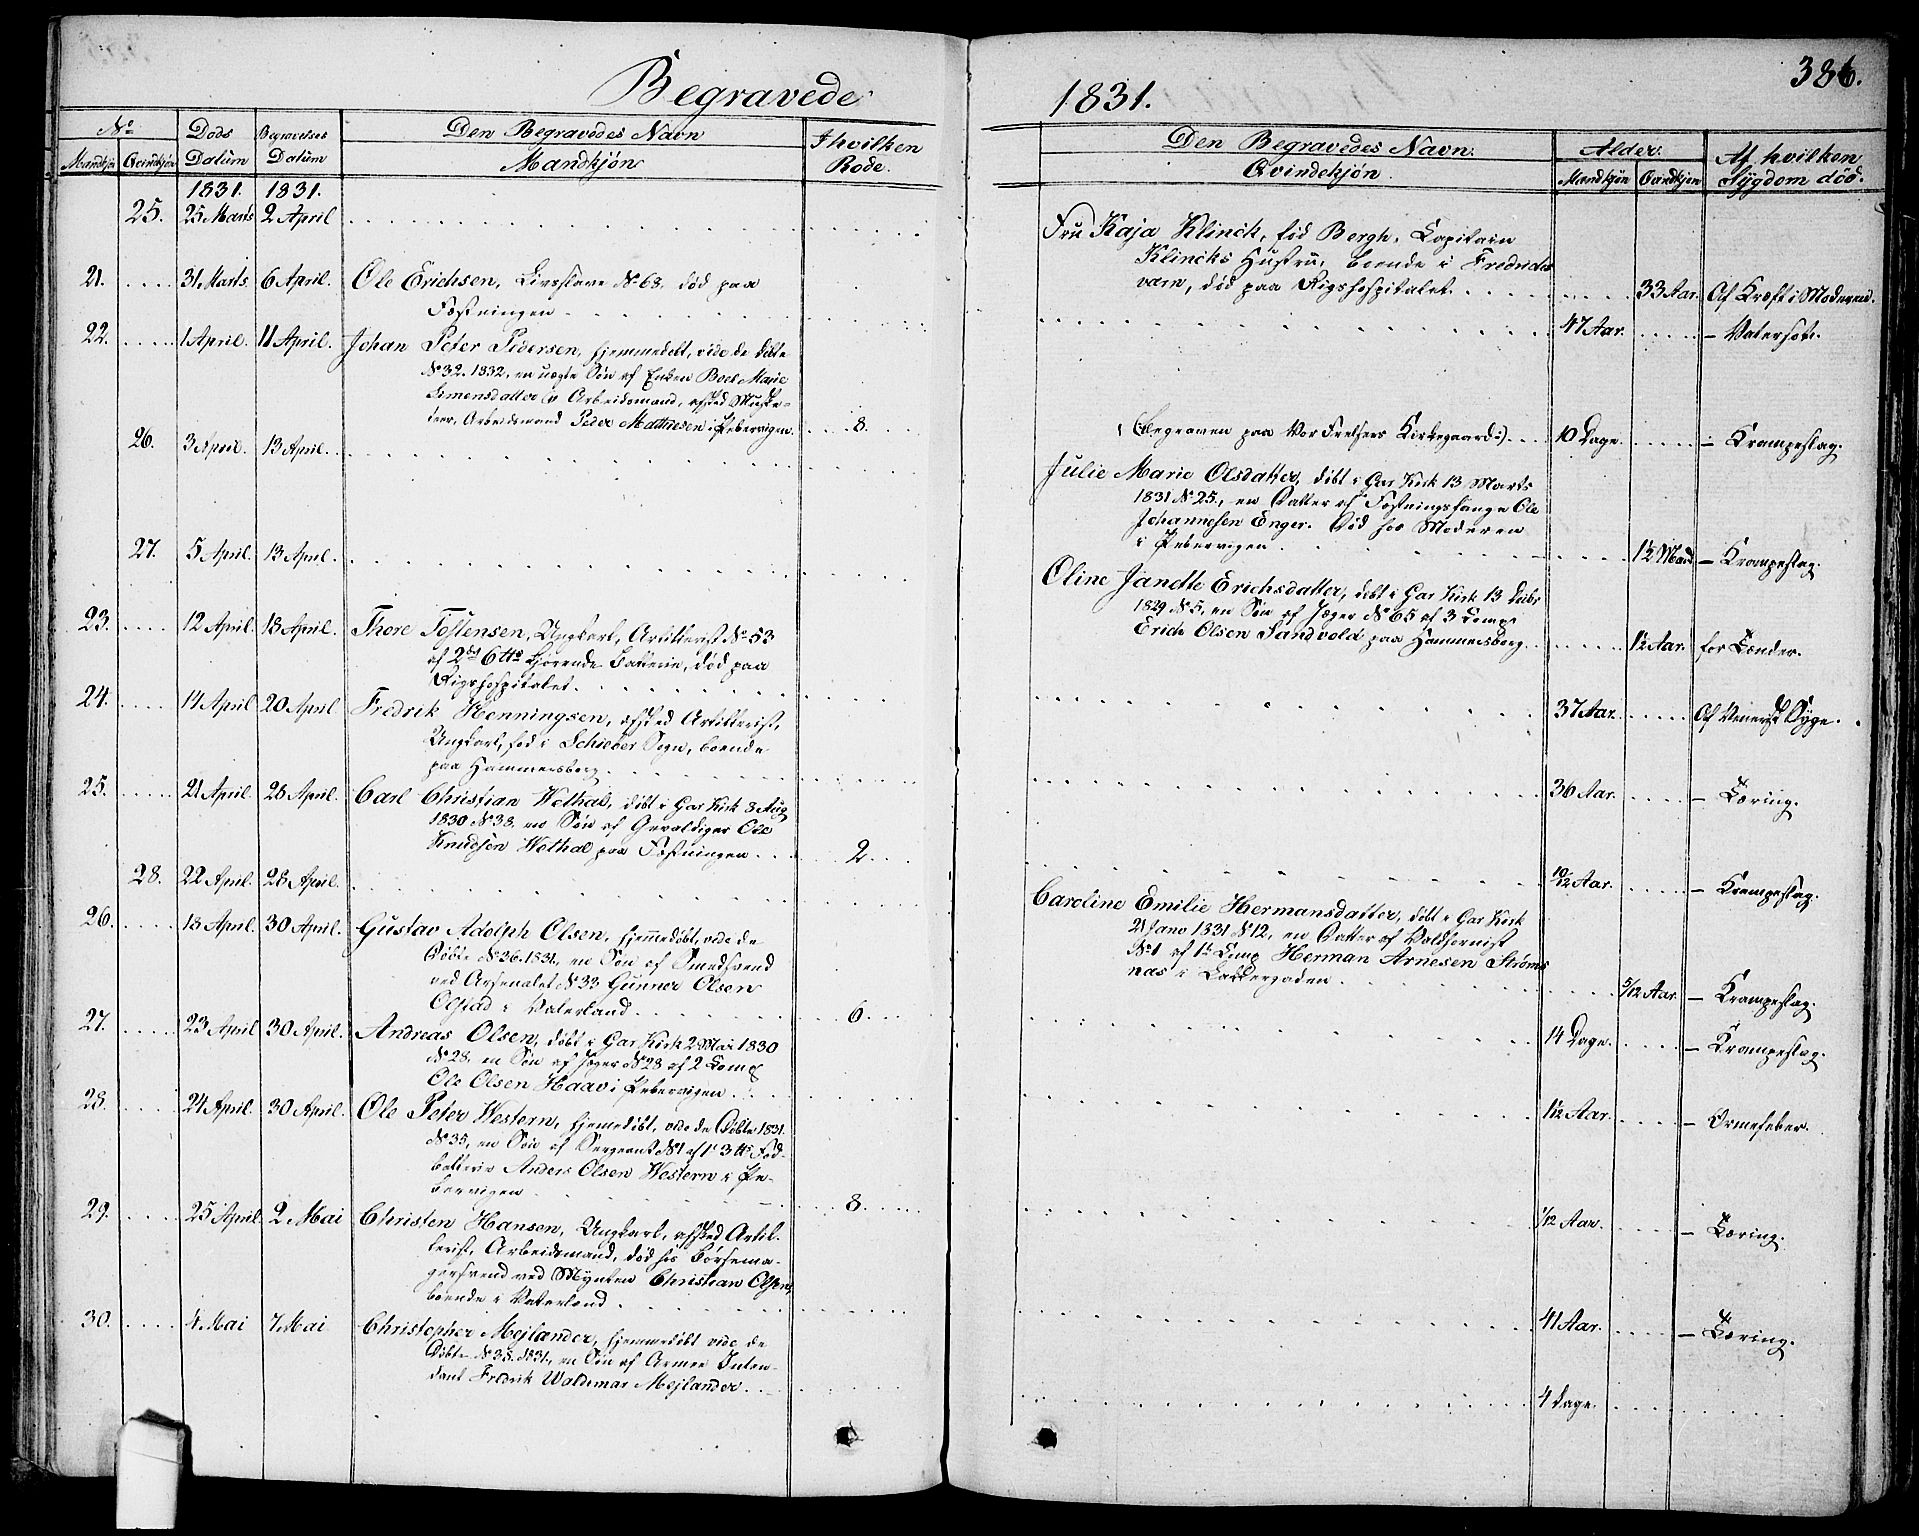 Begravede
1831.
386.
No
Mandkjøn Qvindkjøn
Døds Datum
Begravelses Datum
Den Begravedes Navn
Mandkjøn
I hvilken Rode.
Den Begravedes Navn.
Qvindekjøn.
Alder.
Mandkjøn Qvindkjøn
Af hvilken Sygdom død.
1831. 1831.
25. 25 Marts 2 April
Fru Kaja Klinck, fød Bergh, Capitain
Klincks Hustru, boende i Fredriks
værn, død paa Rigshospitalet. 33 Aar. Af Kræft i Moderen.
21. 31 Marts. 6 April. Ole Erichsen, Livsslave No 68. død paa
Fæstningen 47 Aar. – Vatersot.
22. 1 April. 11 April. Johan Peter Pedersen, hjemmedøbt, vide de døbte
No 32. 1832, en uægte Søn af Enken Boel Marie
Simensdatter og Arbeidsmand, afsked Muske-
teer, Arbeidsmand Peder Mathiesen i Pebervigen. 8.
(Begraven paa Vor Frelsers Kirkegaard:) 10 Dage. – Krampeslag.
26. 3 April. 13 April.
Julie Marie Olsdatter, døbt i Gar Kirk 13 Marts
1831 No 25., en Datter af Fæstningsfange Ole
Johannesen Enger. Død hos Moderen
i Pebervigen 1½ Maad – Krampeslag.
27. 5 April. 13 April.
Oline Janette Erichsdatter, døbt i Gar Kirk 13 Decbr
1829 No 5, en Søn af Jæger No 65 af 3 Comp
Erich Olsen Sandvold paa Hammersborg. 1½ Aar. for Tænder.
23. 12 April. 18 April. Thore Tostensen, Ungkarl, Artillerist No 53
af 2det 6 ttes kjørende Batterie, død paa
Rigshospitalet. 37 Aar. Af Venerisk Syge.
24. 14 April 20 April Fredrik Henningsen, afsked Artillerist,
Ungkarl, fød i Schieber Sogn, boende
paa Hammersborg. 36 Aar. – Tæring.
25. 21 April. 28 April. Carl Christian Wethal, døbt i Gar Kirk 8 Aug
1830 No 38. en Søn af Gevaldiger Ole
Knudsen Wethal paa Fæstningen 2. 10/12 Aar. – Krampeslag.
28. 22 April. 28 April.
Caroline Emilie Hermansdatter, døbt i Gar Kirk
21 Jano 1831 No 12, en Datter af Valdhornist
No 1 af 1e Comp Herman Arnesen Strøms
nas i Lakkergaden 5/12 Aar. – Krampeslag.
26. 18 April. 30 April. Gustav Adolph Olsen, hjemedøbt, vide de
Døbte No 36. 1831, en Søn af Smedsvend
ved Arsenalet No 33 Gunner Olsen
Olstad i Vaterland 6. 14 Dage. – Krampeslag.
27. 23 April 30 April. Andreas Olsen, døbt i Gar Kirk 2 Mai 1830
No 28. en Søn af Jæger No 28 af 2 Comp
Ole Olsen Haav i Pebervigen 1 1/12 Aar. – Ormefeber.
28. 24 April. 30 April. Ole Peter Western, hjemmedøbt, vide de Døbte 1831.
No 35, en Søn af Sergeant No 1 af 1e 3 ttes Fod-
batterie Anders Olsen Western i Pe-
bervigen 8. 1/12 Aar. – Tæring.
29. 25 April. 2 Mai Christen Hansen, Ungkarl, afsked Artil-
lerist, Arbeidsmand, død hos Børsema-
gersvend ved Mynten Christian Olsen,
boende i Vaterland 41 Aar. – Tæring.
30. 4 Mai 7 Mai Christopher Mejlander, hjemmedøbt vide de
Døbte No 38. 1831, en Søn af Armee Inten-
dant Fredrik Waldemar Mejlander. 4 Dage.